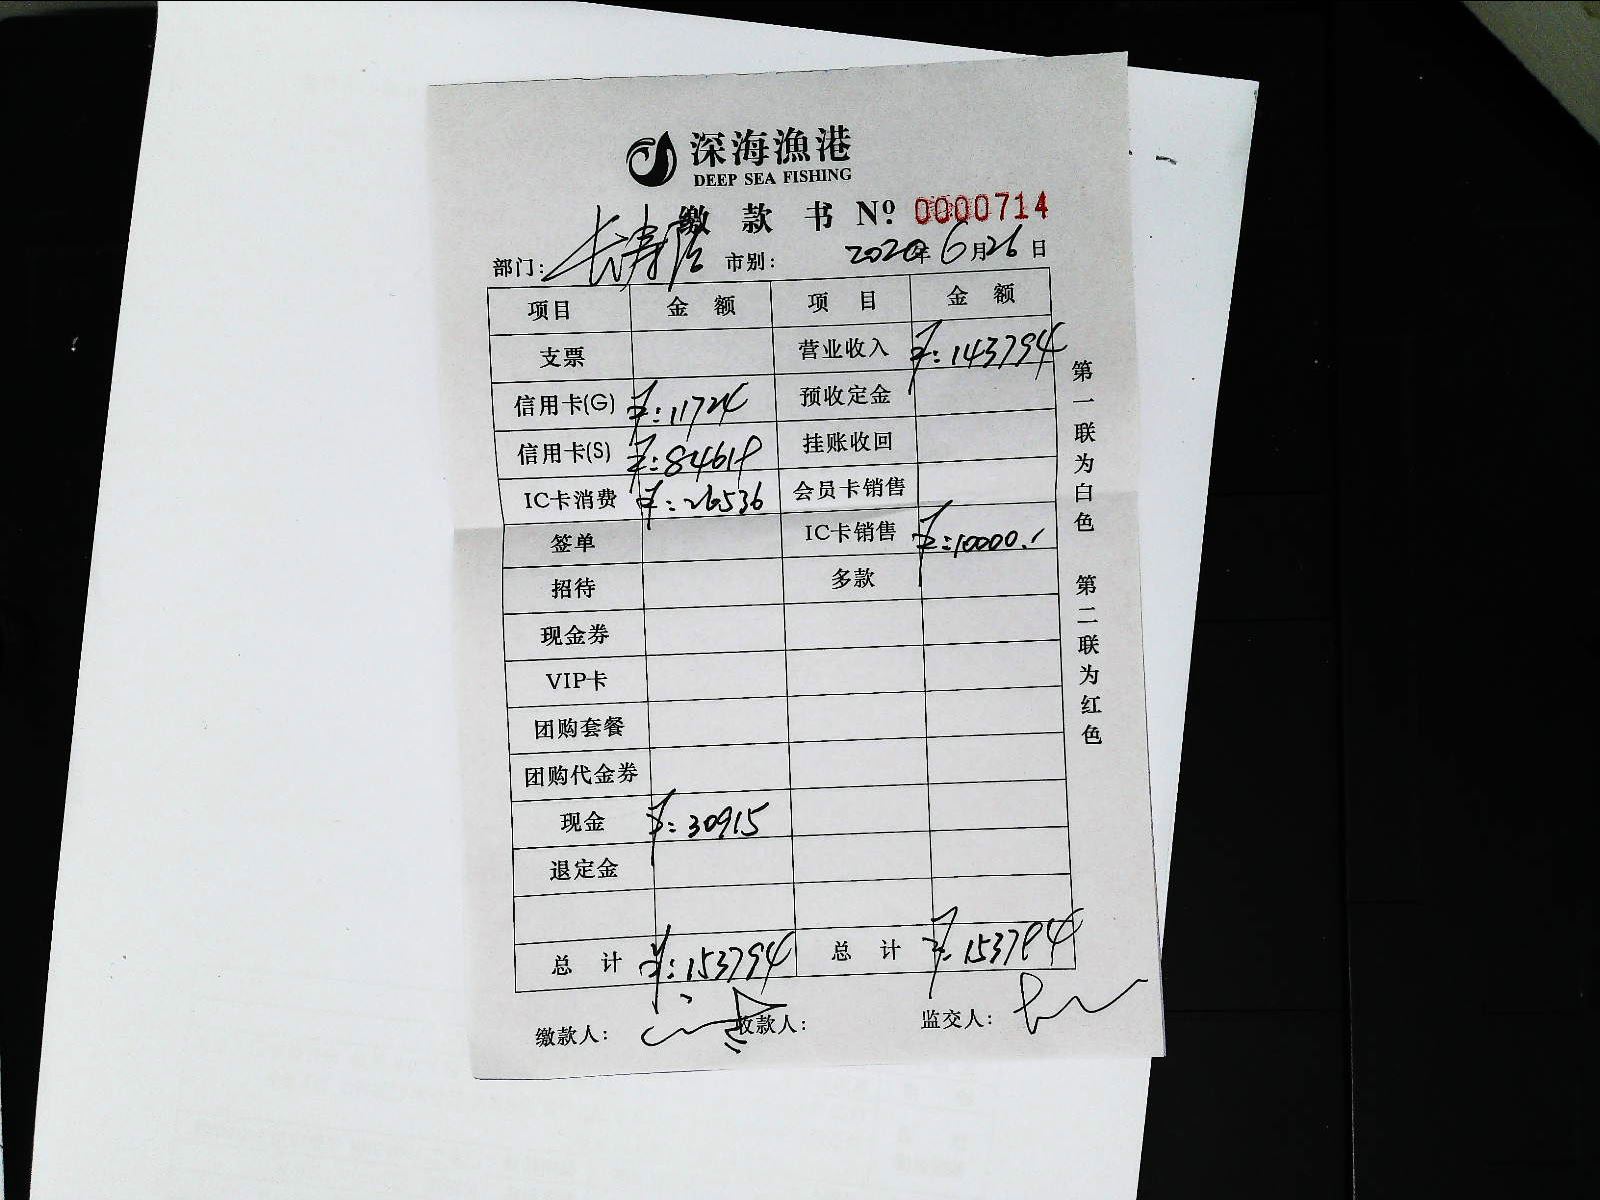 深海漁港
DEEP SEA FISHING
缴款书 Nº: 0000714
部门: 长寿店 市别: 2020年6月26日
项目 金额 项目 金额
支票 营业收入 ¥:143794
信用卡(G) ¥:11724 预收定金
信用卡(S) ¥:84619 挂账收回
IC卡消费 ¥:26536 会员卡销售
签单 IC卡销售 ¥:10000.
招待 多款
现金券
VIP卡
团购套餐
团购代金券
现金 ¥:30915
退定金
总计 ¥:153794 总计 ¥:153794
缴款人: 收款人: 监交人:
第一联为白色 第二联为红色